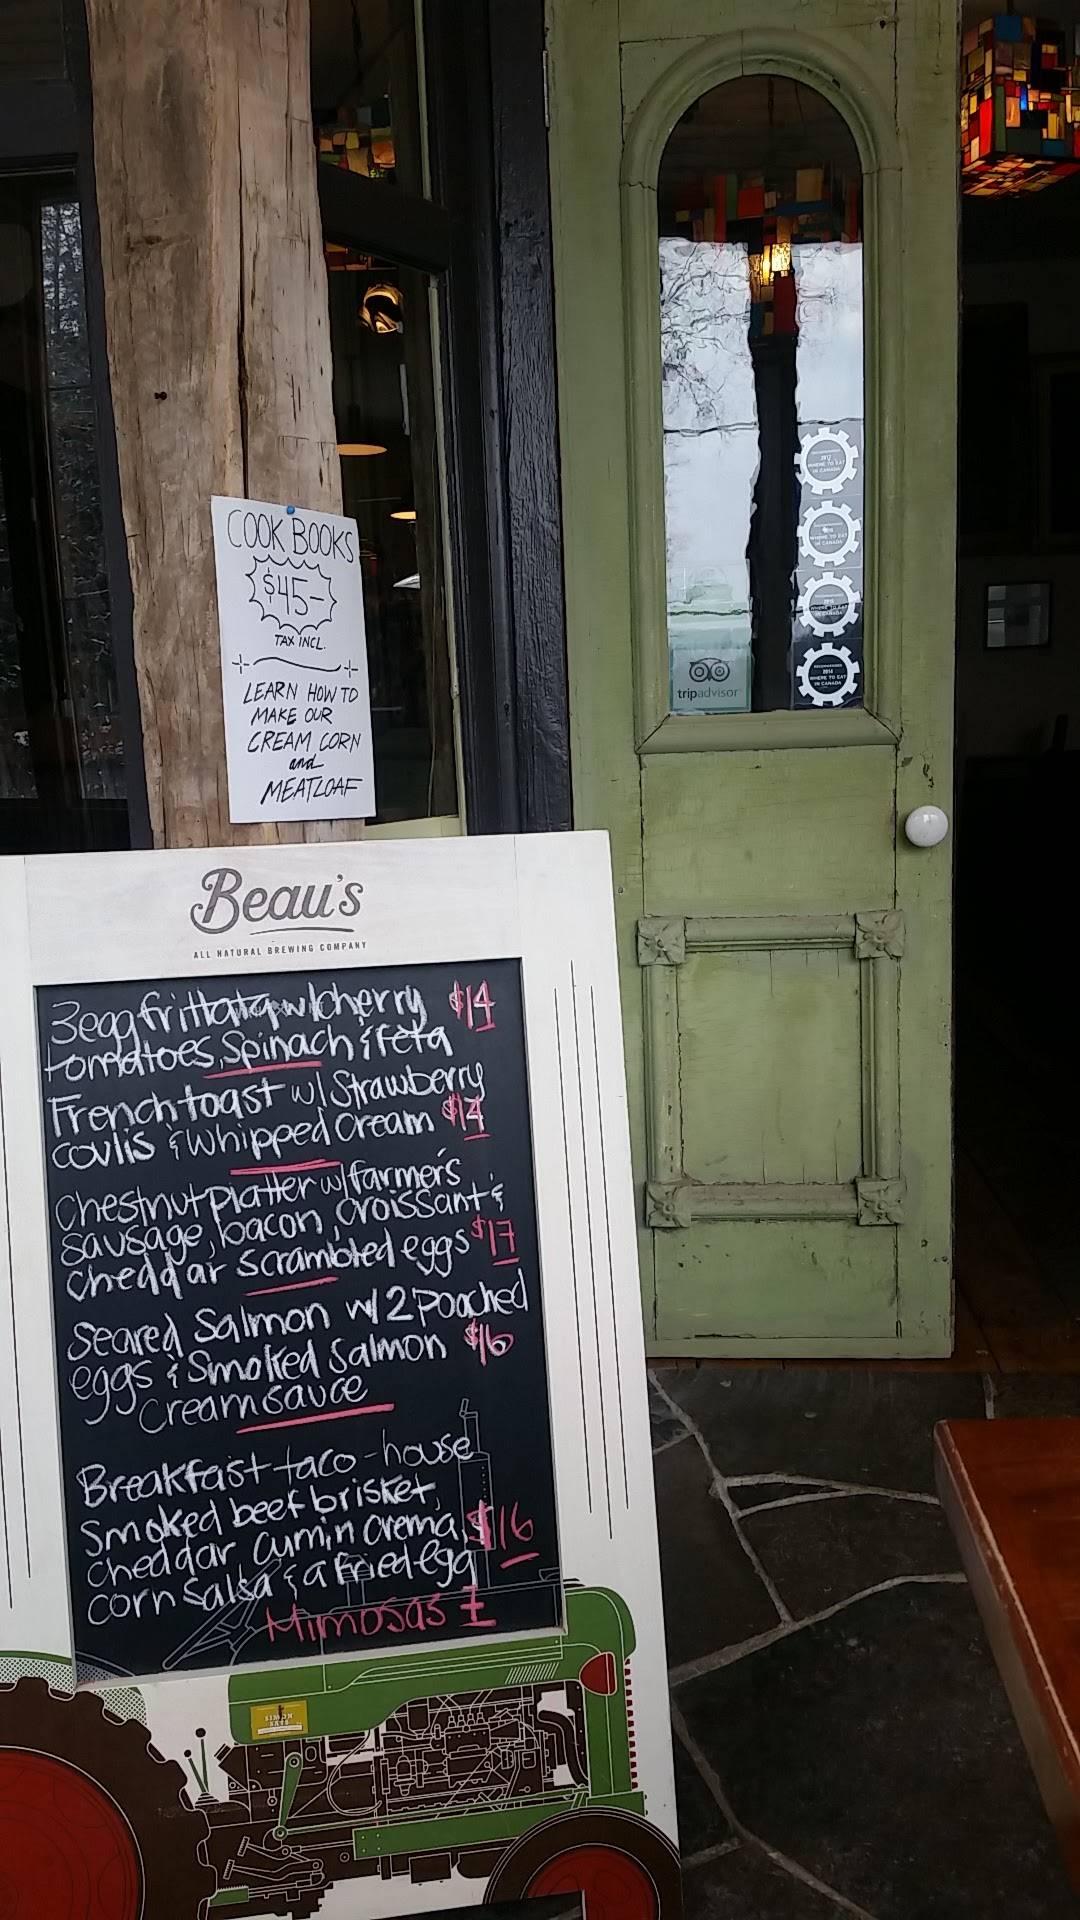 COOK BOOKS
$45-
TAX INCL.
LEARN HOW TO
MAKE OUR
CREAM CORN
and
MEATLOAF
2017
WHERE TO EAT
IN CANADA
WHERE TO EAT
IN CANADA
WHERE TO EAT
IN CANADA
RECOMMENDED
2014
WHERE TO EAT
IN CANADA
tripadvisor
Beau's
ALL NATURAL BREWING COMPANY
3egg frittata w/cherry $14
tomatoes, Spinach & feta
French toast w/ Strawberry
coulis & whipped cream $14
Chestnut Platter w/ farmer's
sausage, bacon, croissant &
cheddar scrambled eggs $17
Seared Salmon w/ 2 Poached
eggs & Smoked Salmon $16
cream sauce
Breakfast taco - house
Smoked beef brisket,
cheddar, cumin crema, $16
corn salsa & a fried egg
Mimosas 7
SIMON
SAYS